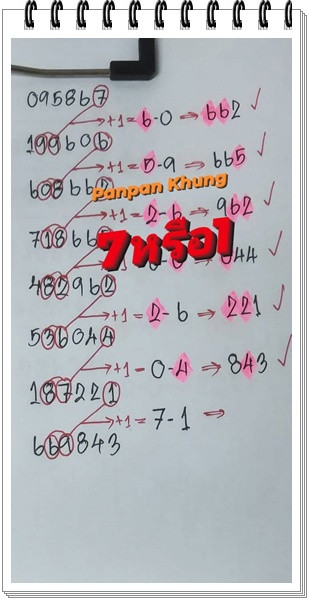 095867
+1 = 6-0 ⇒ 662 ✓
199606
+1 = 5-9 ⇒ 665 ✓
608662
Panpan Khung
+1 = 2-6 ⇒ 962 ✓
71866
7หรือ1
44 ✓
482962
+1 = 2-6 ⇒ 221 ✓
536044
+1 = 0-4 ⇒ 843 ✓
187221
+1 = 7-1 ⇒
669843